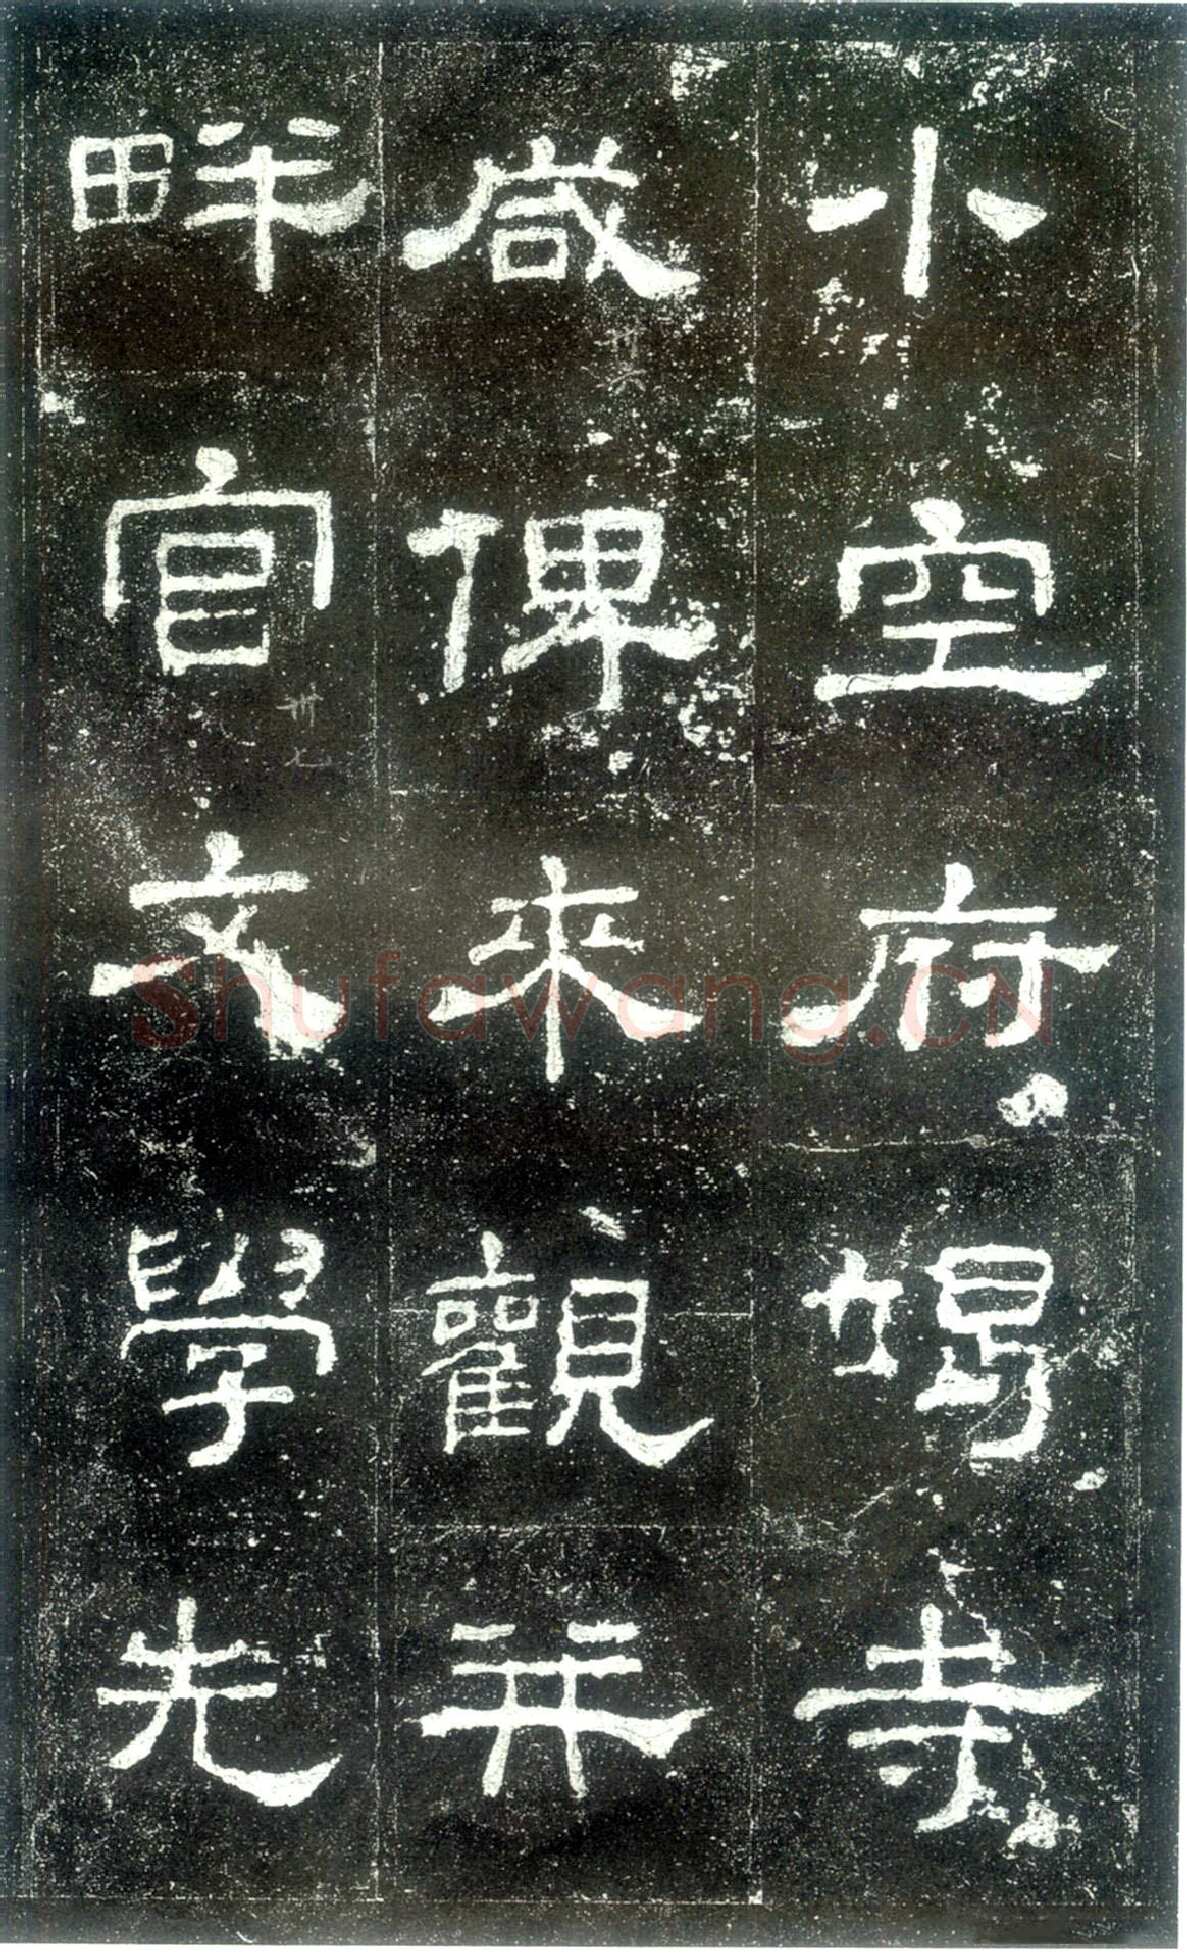 小空府竭寺
咸俾來觀并
畔官文學先
Shufawang.CN